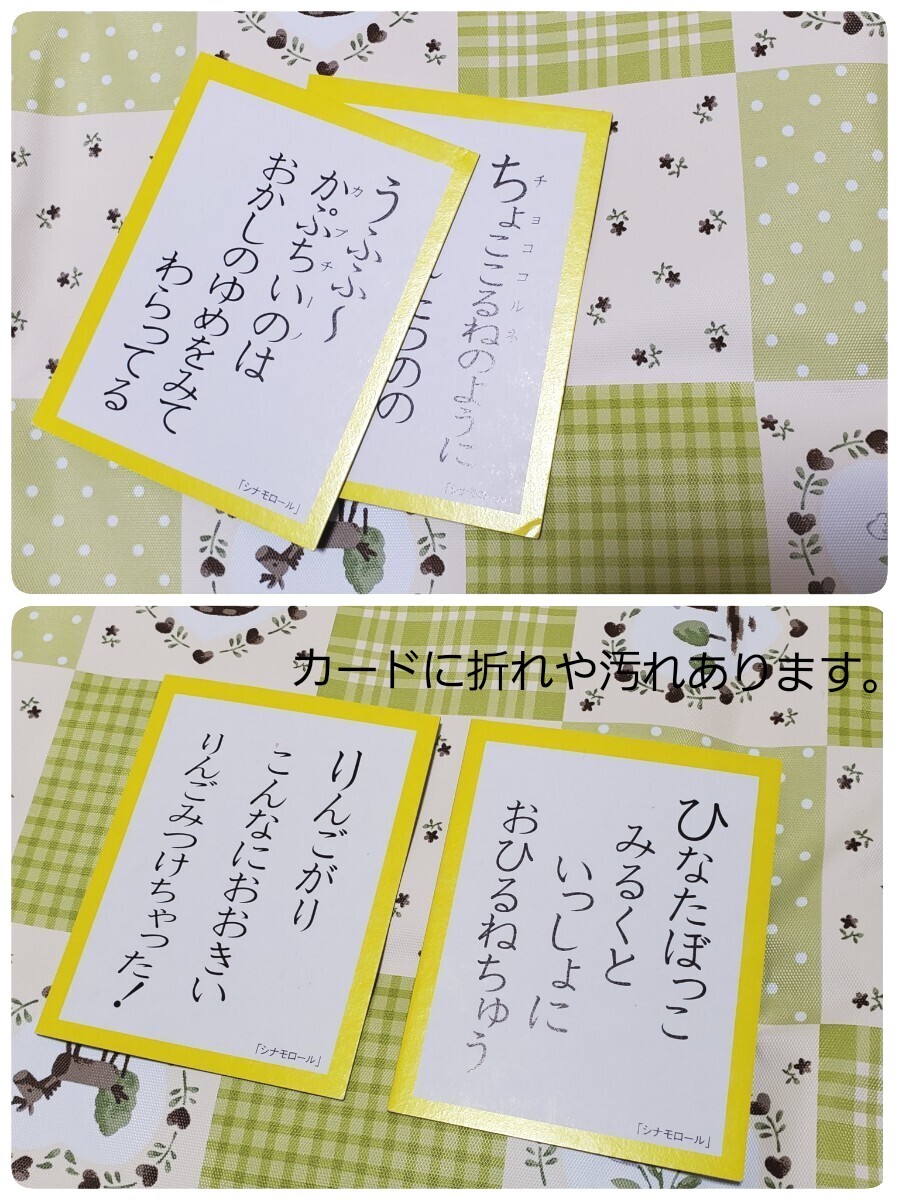 うふふ〜
かぷちいのは
カプチーノ
おかしのゆめをみて
わらってる
「シナモロール」
ちょこころねのように
チョココルネ
つのの
カードに折れや汚れあります。
りんごがり
こんなにおおきい
りんごみつけちゃった!
「シナモロール」
ひなたぼっこ
みるくと
いっしょに
おひるねちゅう
「シナモロール」